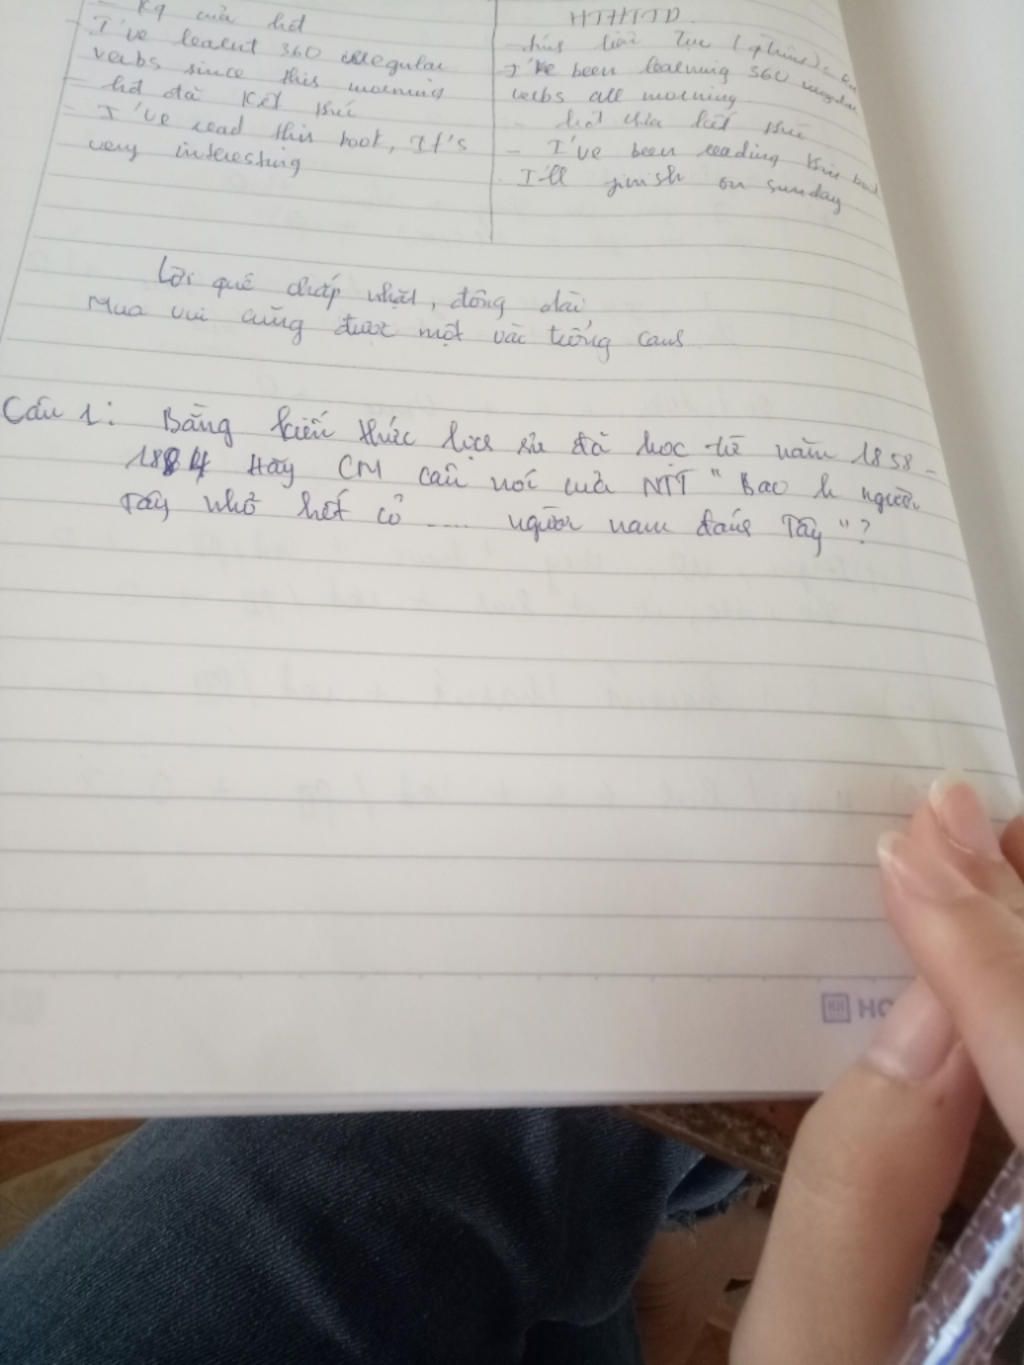 - Kq của hđ
- I've learnt 360 irregular
verbs since this morning
- hđ đã kết thúc
- I've read this book, It's
very interesting
HTHTTD
- tính liên tục (
- I've been learning 360
verbs all morning
- hđ chưa kết thúc
- I've been reading this
I'll finish on sunday
Lời quê chắp nhặt, dông dài,
Mua vui cũng được một vài trống canh
Câu 1: Bằng kiến thức lịch sử đã học từ năm 1858 -
1884 Hãy CM câu nói của NTT "Bao h người
Tây nhổ hết cỏ .... người nam đánh Tây"?
HO